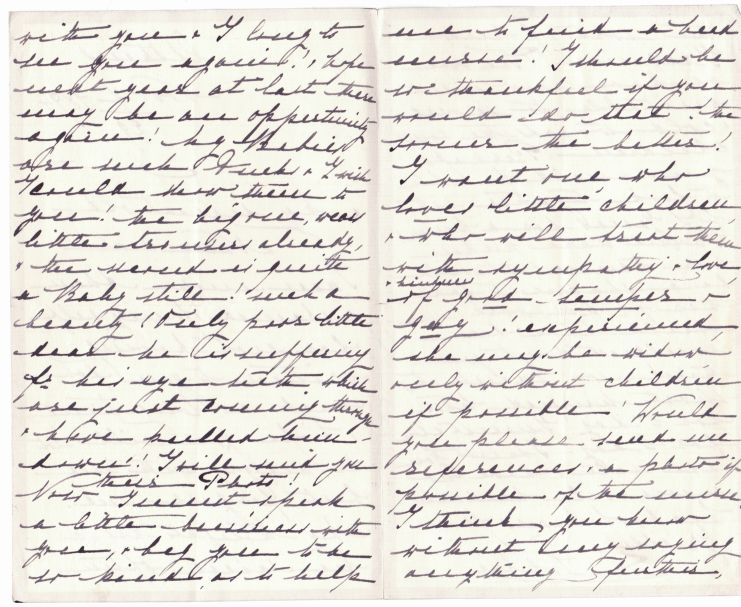 with you & I long to
see you again!, hope
next year at last there
may be an opportunity
again! My Babies
are such Ducks & I wish
I could show them to
you! the big one, wears
little trousers already,
& the second is quite
a Baby still! such a
beauty! Only poor little
dear he is suffering
fr his eye teeth which
are just coming through
& have pulled him
down! I will send you
their Photo!
Now I must speak
a little business with
you, & beg you to be
so kind, as to help
me to find a head
nurse! I should be
so thankful if you
would do that! the
sooner the better!
I want one who
loves little children,
& who will treat them
with sympathy & love
&
of good temper &
gay! experienced,
she may be widow
only without children
if possible! Would
you please send me
references, & a photo if
possible of the nurse.
I think you know
without my saying
anything further,